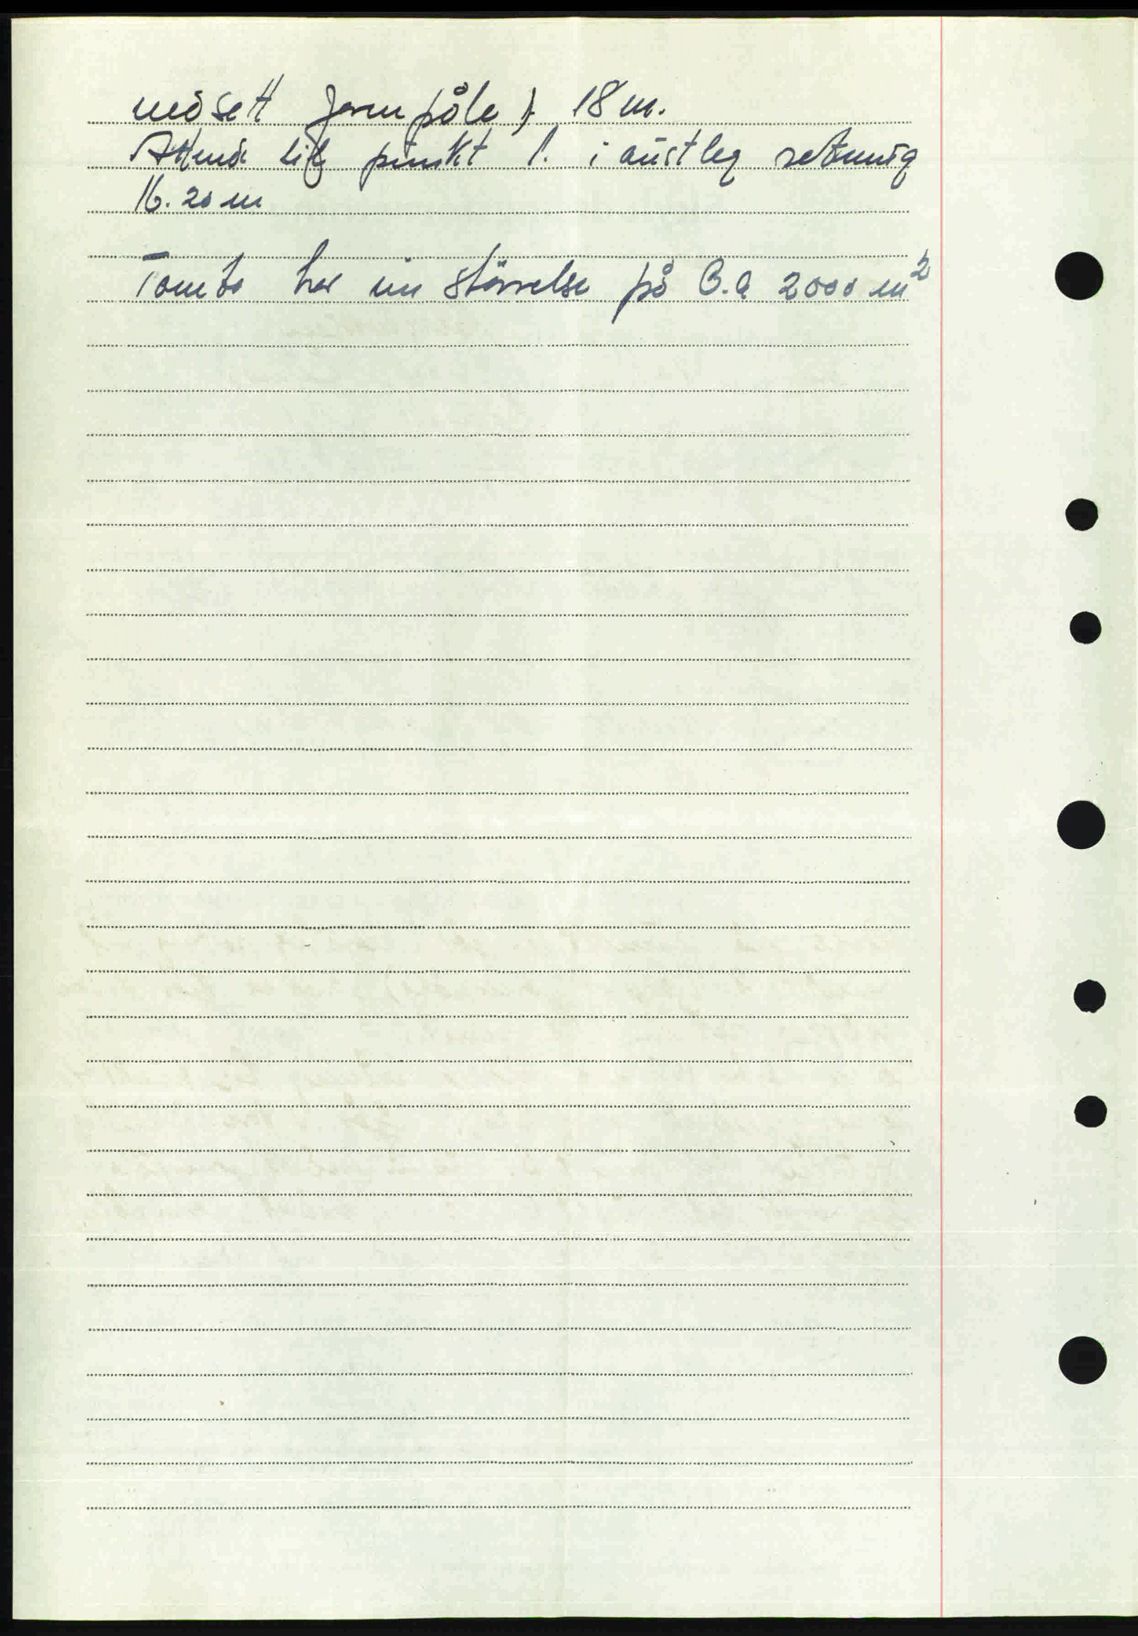 nedsett Jernpåle) 18 m.
Attende til punkt 1. i austleg retning
16.20 m
Tomta har ein störrelse på C.a 2000 m²